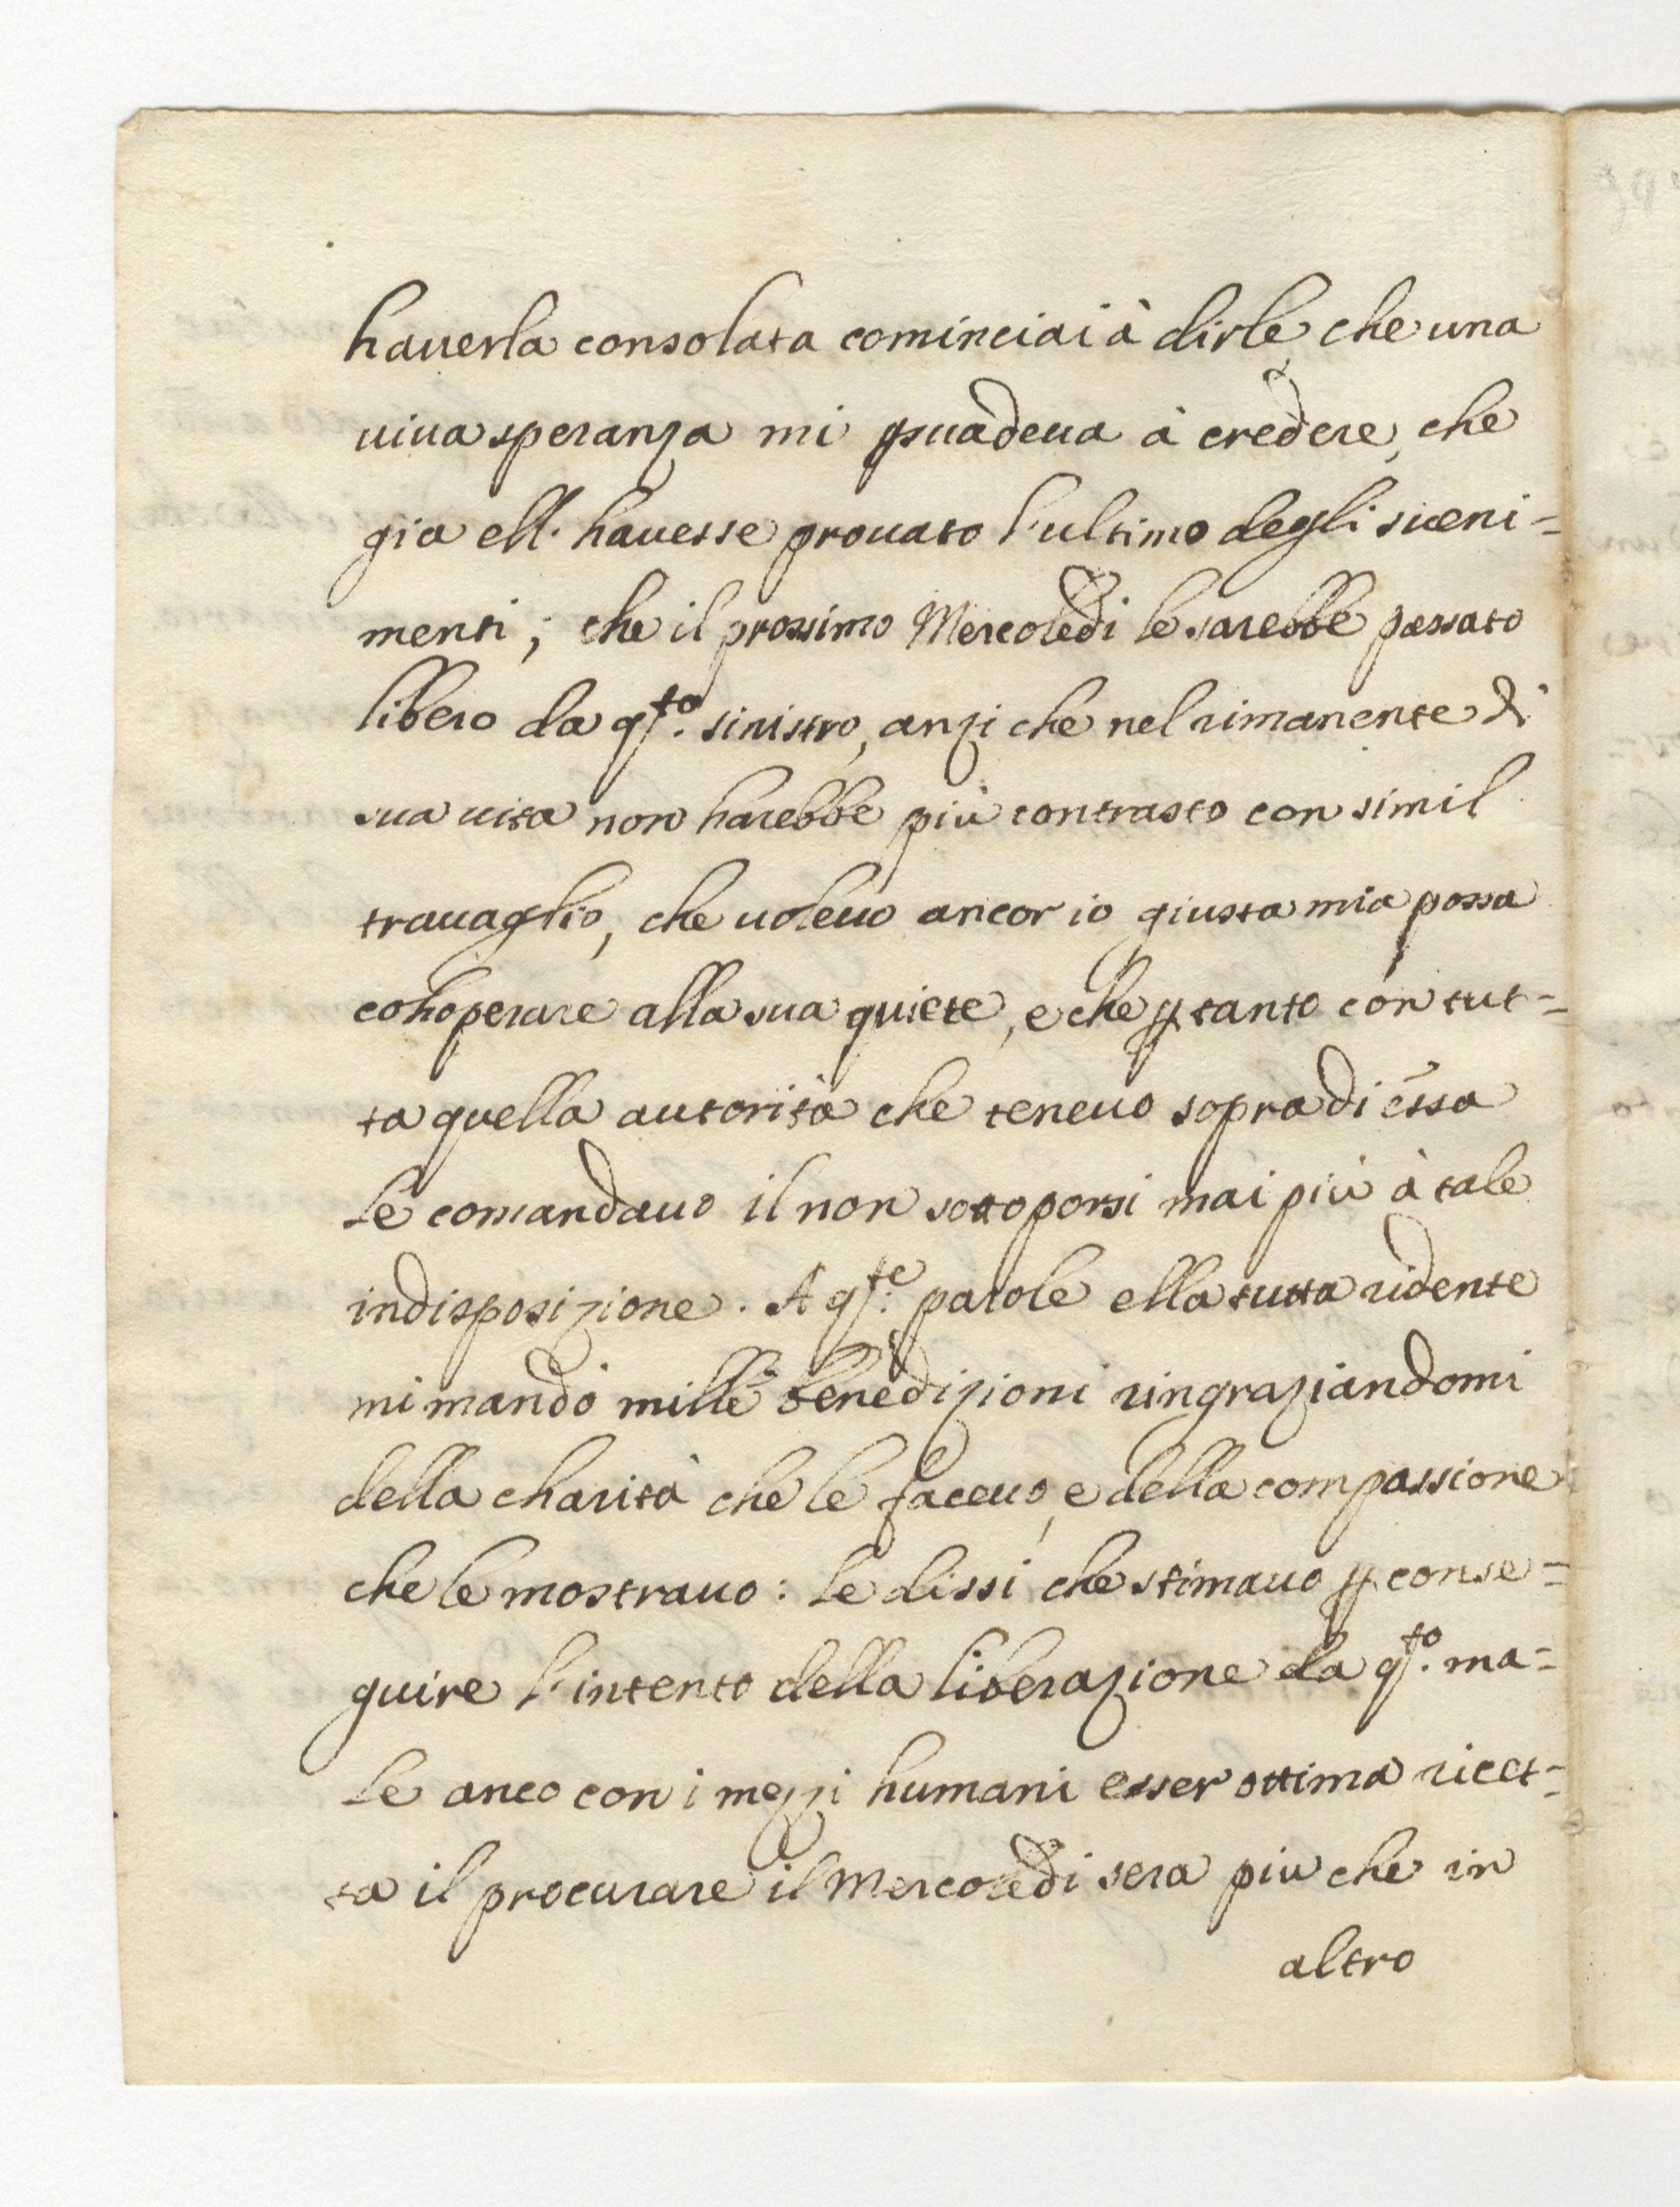 hauerla consolata cominciai à dirle, che una
uiua speranza mi ꝑsuadeua à credere, che
gia ell' hauesse prouato l'ultimo degli sueni=
menti; che il prossimo Mercoledi le sarebbe passato
libero da q.sto sinistro, anzi che nel rimanente di
sua uita non harebbe più contrasto con simil
trauaglio, che uoleuo ancor io giusta mia possa
cohoperare alla sua quiete, e che ꝑ tanto con tut=
ta quella autorità che teneuo sopra di essa
le comandauo il non sottoporsi mai più à tale
indisposizione. A q.ste parole ella tutta ridente
mi mandò mille benedizioni ringraziandomi
della charità che le faceuo, e della compassione
che le mostrauo: le dissi che stimauo ꝑ conse=
guire l'intento della liberazione da q.sto ma=
le anco con i mezzi humani esser ottima ricet=
ta il procurare il Mercoledi sera più che in
altro